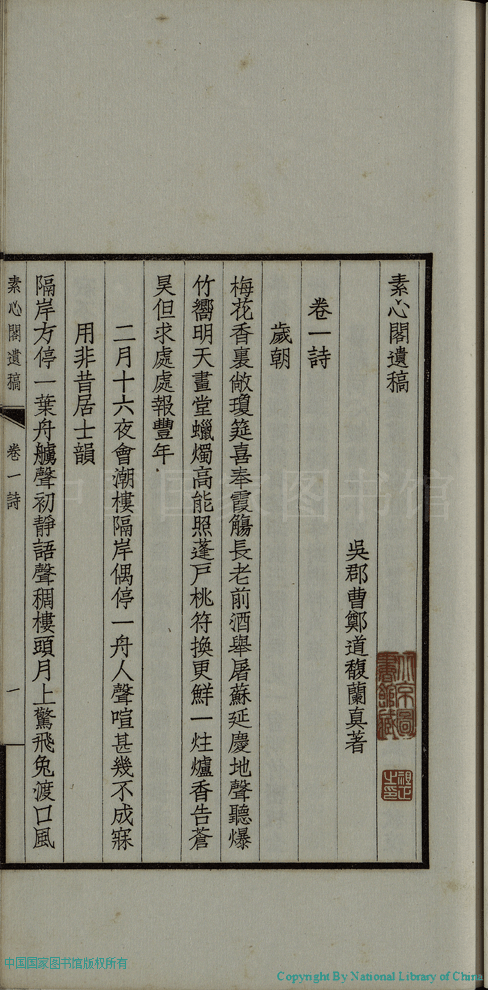 素心閣遺稿
吳郡曹鄭道馥蘭真著
卷一詩
歲朝
梅花香裏敞瓊筵喜奉霞觴長老前酒舉屠蘇延慶地聲聽爆
竹嚮明天畫堂蠟燭高能照蓬戶桃符換更鮮一炷爐香告蒼
昊但求處處報豐年
二月十六夜會潮樓隔岸偶停一舟人聲喧甚幾不成寐
用非昔居士韻
隔岸方停一葉舟艣聲初靜語聲稠樓頭月上驚飛兔渡口風
素心閣遺稿 卷一詩 一
中国国家图书馆
中国国家图书馆版权所有
Copyright By National Library of China